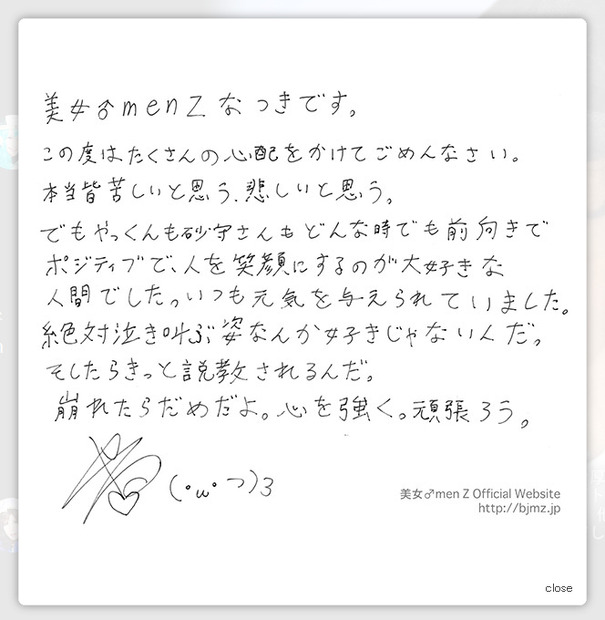 美女♂menZなつきです。
この度はたくさんの心配をかけてごめんなさい。
本当皆苦しいと思う、悲しいと思う。
でもやっくんも砂守さんもどんな時でも前向きで
ポジティブで、人を笑顔にするのが大好きな
人間でした。いつも元気を与えられていました。
絶対泣き叫ぶ姿なんか好きじゃない人だ。
そしたらきっと説教されるんだ。
崩れたらだめだよ。心を強く。頑張ろう。
(・ω・つ)3
美女♂men Z Official Website
http://bjmz.jp
close